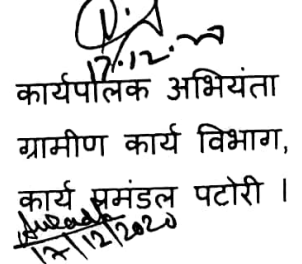 17.12.20
कार्यपालक अभियंता
ग्रामीण कार्य विभाग,
कार्य प्रमंडल पटोरी ।
17/12/2020